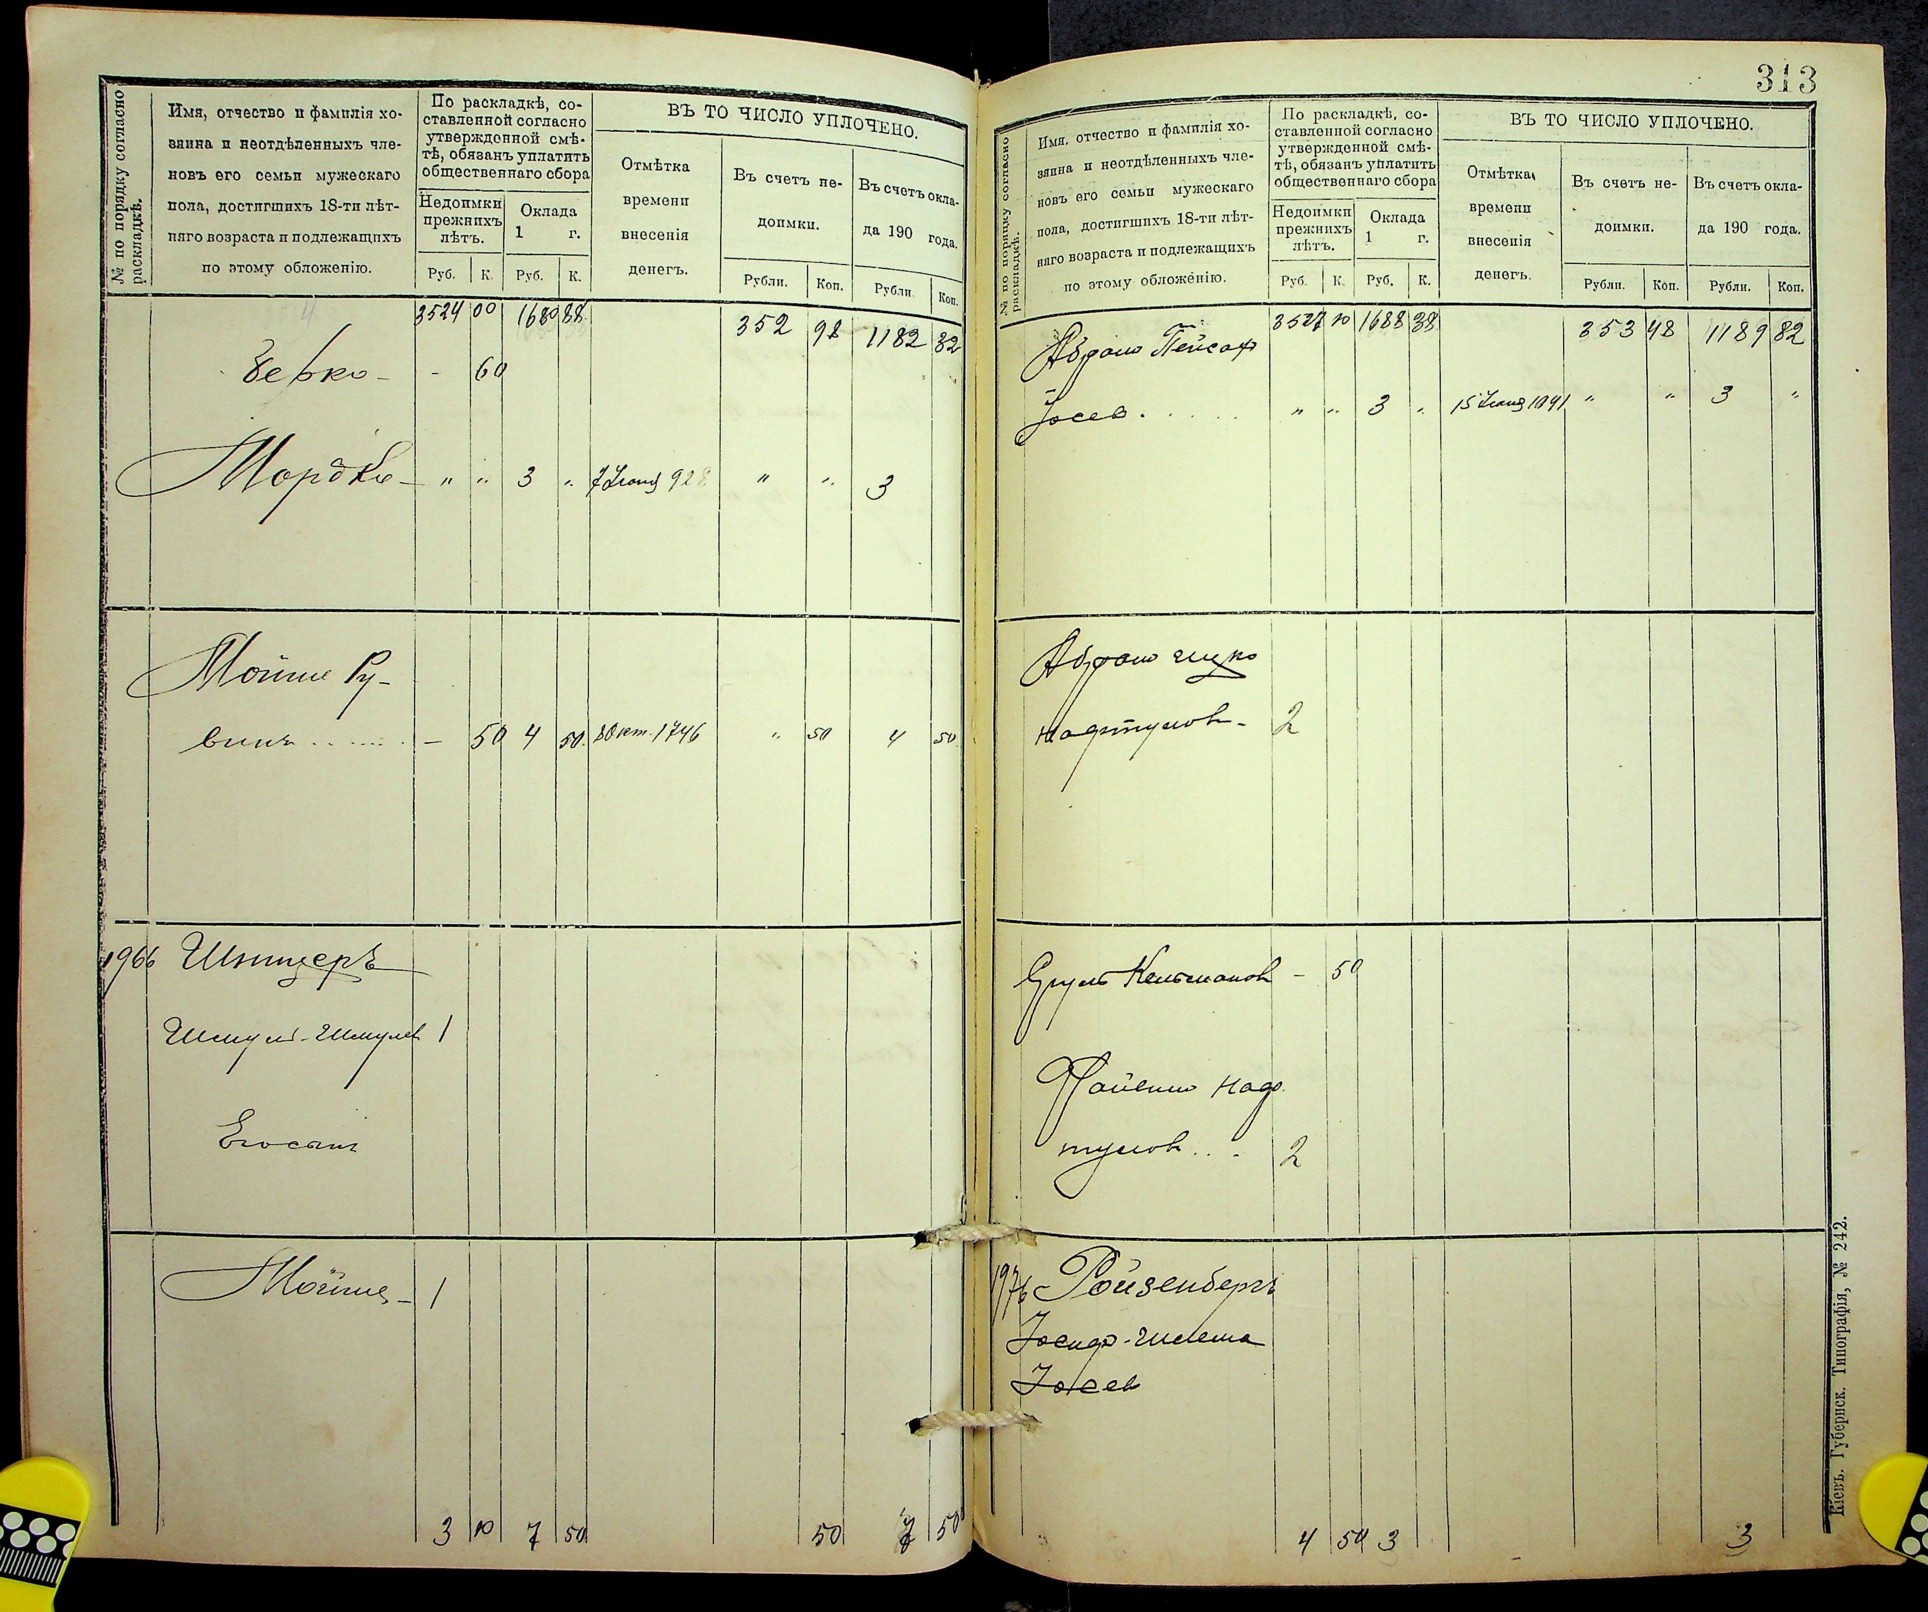 № по порядку согласно
раскладкѣ.
Имя, отчество и фамилія хо-
зяина и неотдѣленныхъ чле-
новъ его семьи мужескаго
пола, достигшихъ 18-ти лѣт-
няго возраста и подлежащихъ
по этому обложенію.
По раскладкѣ, со-
ставленной согласно
утвержденной смѣ-
тѣ, обязанъ уплатить
общественнаго сбора
Недоимки
прежнихъ
лѣтъ.
Оклада
1 г.
Руб. К. Руб. К.
ВЪ ТО ЧИСЛО УПЛОЧЕНО.
Отмѣтка
времени
внесенія
денегъ.
Въ счетъ не-
доимки.
Въ счетъ окла-
да 190 года.
Рубли. Коп. Рубли. Коп.
3524 00 1680 88 352 98 1182 32
Берко - - 60
Мордко - " " 3 " 7 928 " " 3
Мойше Ру-
винъ ....... - 50 4 50 8 Окт. 1746 " 50 4 50
1966 Шницеръ
Шмуль-Шмулев 1
Мойше - 1
3 10 7 50 50 7 50
313
№ по порядку согласно
раскладкѣ.
Имя, отчество и фамилія хо-
зяина и неотдѣленныхъ чле-
новъ его семьи мужескаго
пола, достигшихъ 18-ти лѣт-
няго возраста и подлежащихъ
по этому обложенію.
По раскладкѣ, со-
ставленной согласно
утвержденной смѣ-
тѣ, обязанъ уплатить
общественнаго сбора
Недоимки
прежнихъ
лѣтъ.
Оклада
1 г.
Руб. К. Руб. К.
ВЪ ТО ЧИСЛО УПЛОЧЕНО.
Отмѣтка
времени
внесенія
денегъ.
Въ счетъ не-
доимки.
Въ счетъ окла-
да 190 года.
Рубли. Коп. Рубли. Коп.
3527 10 1688 38 353 48 1189 82
Абрам Пейсах
Іосев . . . . . " " 3 " 15 1941 " " 3 "
Абрам
Нафтулов - 2
Сруль Кельманов - 50
Файвиш Наф
тулов . . - 2
1976 Ройзенбергъ
Іосиф-Шлема
Іосев
4 50 3 3
Кіевъ. Губернск. Типографія, № 242.